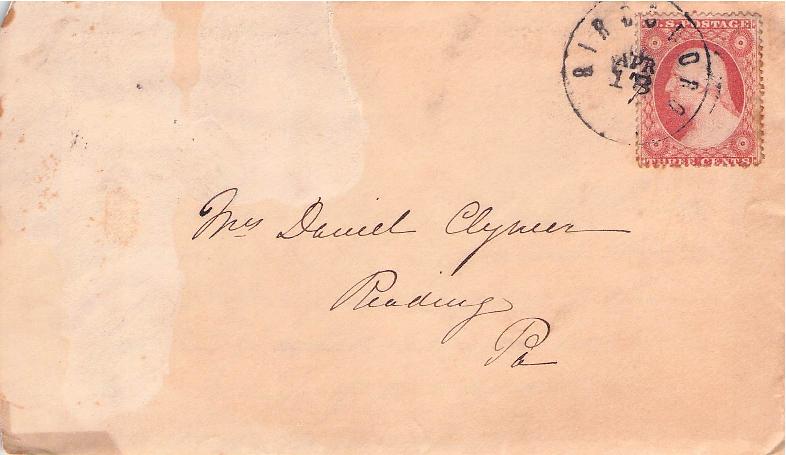 BIRDSBORO
APR
13
U.S. POSTAGE
THREE CENTS
Mrs Daniel Clymer
Reading
Pa